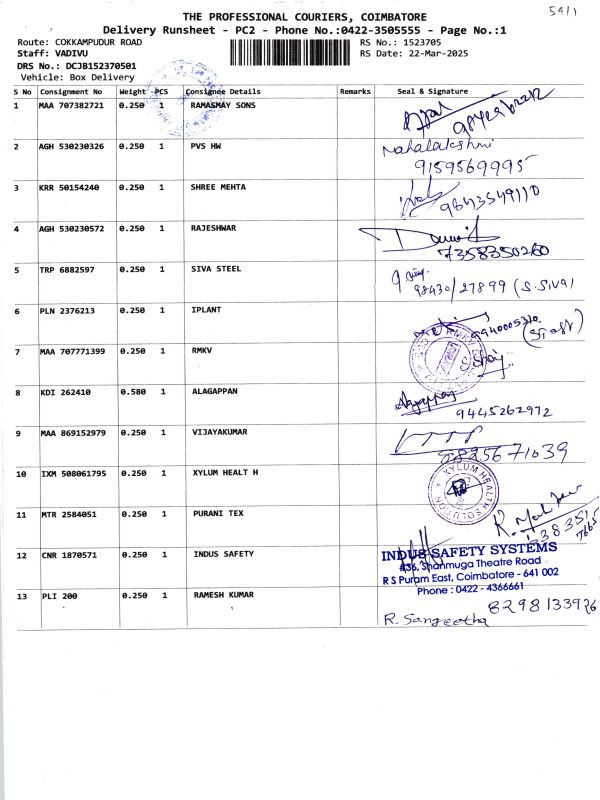 5911
THE PROFESSIONAL COURIERS, COIMBATORE
Delivery Runsheet - PC2 - Phone No.:0422-3505555 - Page No.:1
Route: COKKAMPUDUR ROAD RS No.: 1523705
Staff: VADIVU RS Date: 22-Mar-2025
DRS No.: DCJB152370501
Vehicle: Box Delivery
S No Consignment No Weight PCS Consignee Details Remarks Seal & Signature
1 MAA 707382721 0.250 1 RAMASMAY SONS
2 AGH 530230326 0.250 1 PVS HW Mahalakshmi
9159569995
3 KRR 50154240 0.250 1 SHREE MEHTA 9843549110
4 AGH 530230572 0.250 1 RAJESHWAR
7358350260
5 TRP 6882597 0.250 1 SIVA STEEL
98430/27899 (S.SIVA)
6 PLN 2376213 0.250 1 IPLANT 9940005310
(Staff)
7 MAA 707771399 0.250 1 RMKV
8 KDI 262410 0.580 1 ALAGAPPAN Alagappan
9445262972
9 MAA 869152979 0.250 1 VIJAYAKUMAR
9825671039
10 IXM 508061795 0.250 1 XYLUM HEALT H XYLUM HEALTH SOLUTION
11 MTR 2584051 0.250 1 PURANI TEX
12 CNR 1870571 0.250 1 INDUS SAFETY INDUS SAFETY SYSTEMS
#36, Shanmuga Theatre Road
R S Puram East, Coimbatore - 641 002
Phone : 0422 - 4366661
13 PLI 200 0.250 1 RAMESH KUMAR 8298133926
R. Sangeetha